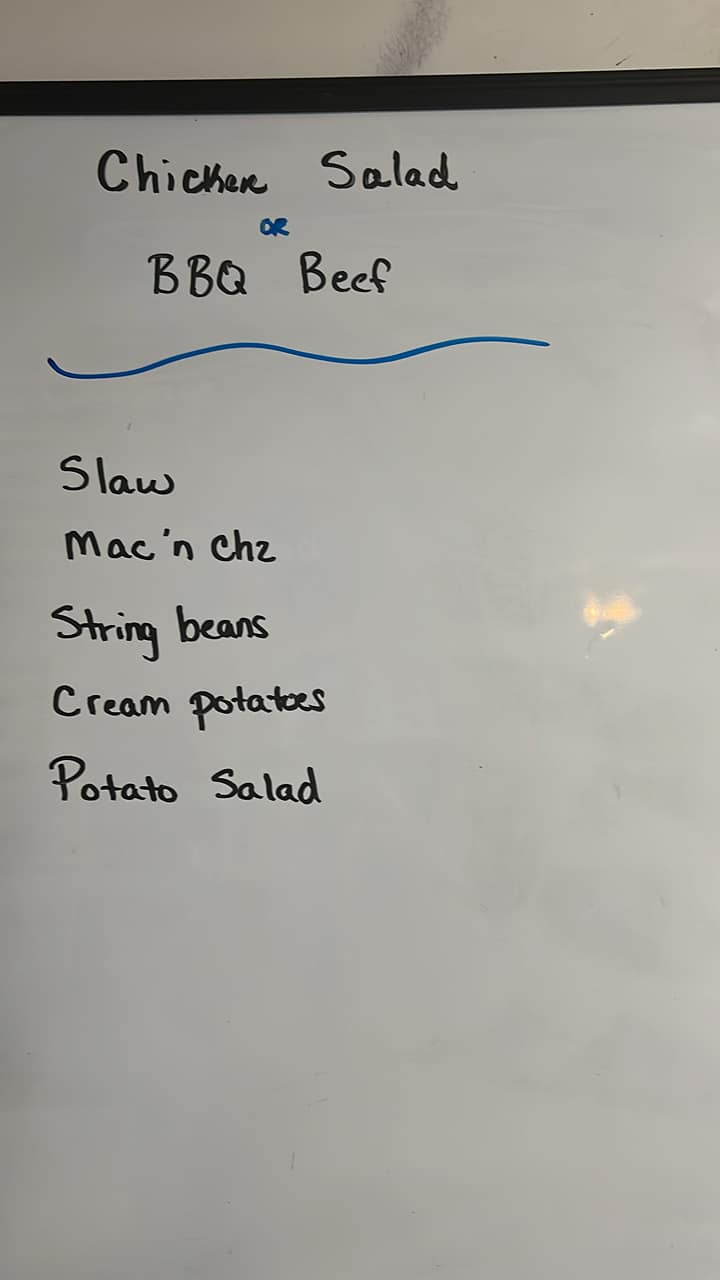 Chicken Salad
OR
BBQ Beef
Slaw
Mac'n Chz
String beans
Cream potatoes
Potato Salad